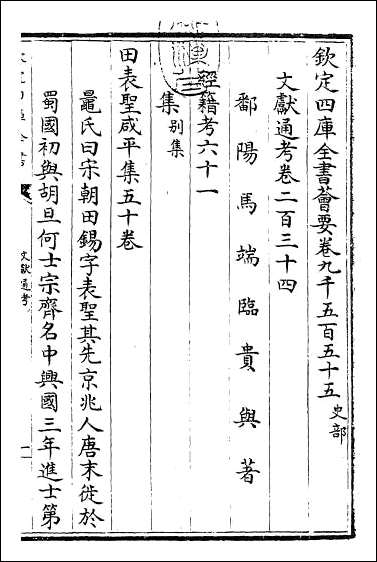 欽定四庫全書薈要卷九千五百五十五 史部
文獻通考卷二百三十四
鄱陽馬端臨貴與著
經籍考六十一
集 别集
田表聖咸平集五十卷
鼂氏曰宋朝田錫字表聖其先京兆人唐末徙於
蜀國初與胡旦何士宗齊名中興國三年進士第
文獻通考
一